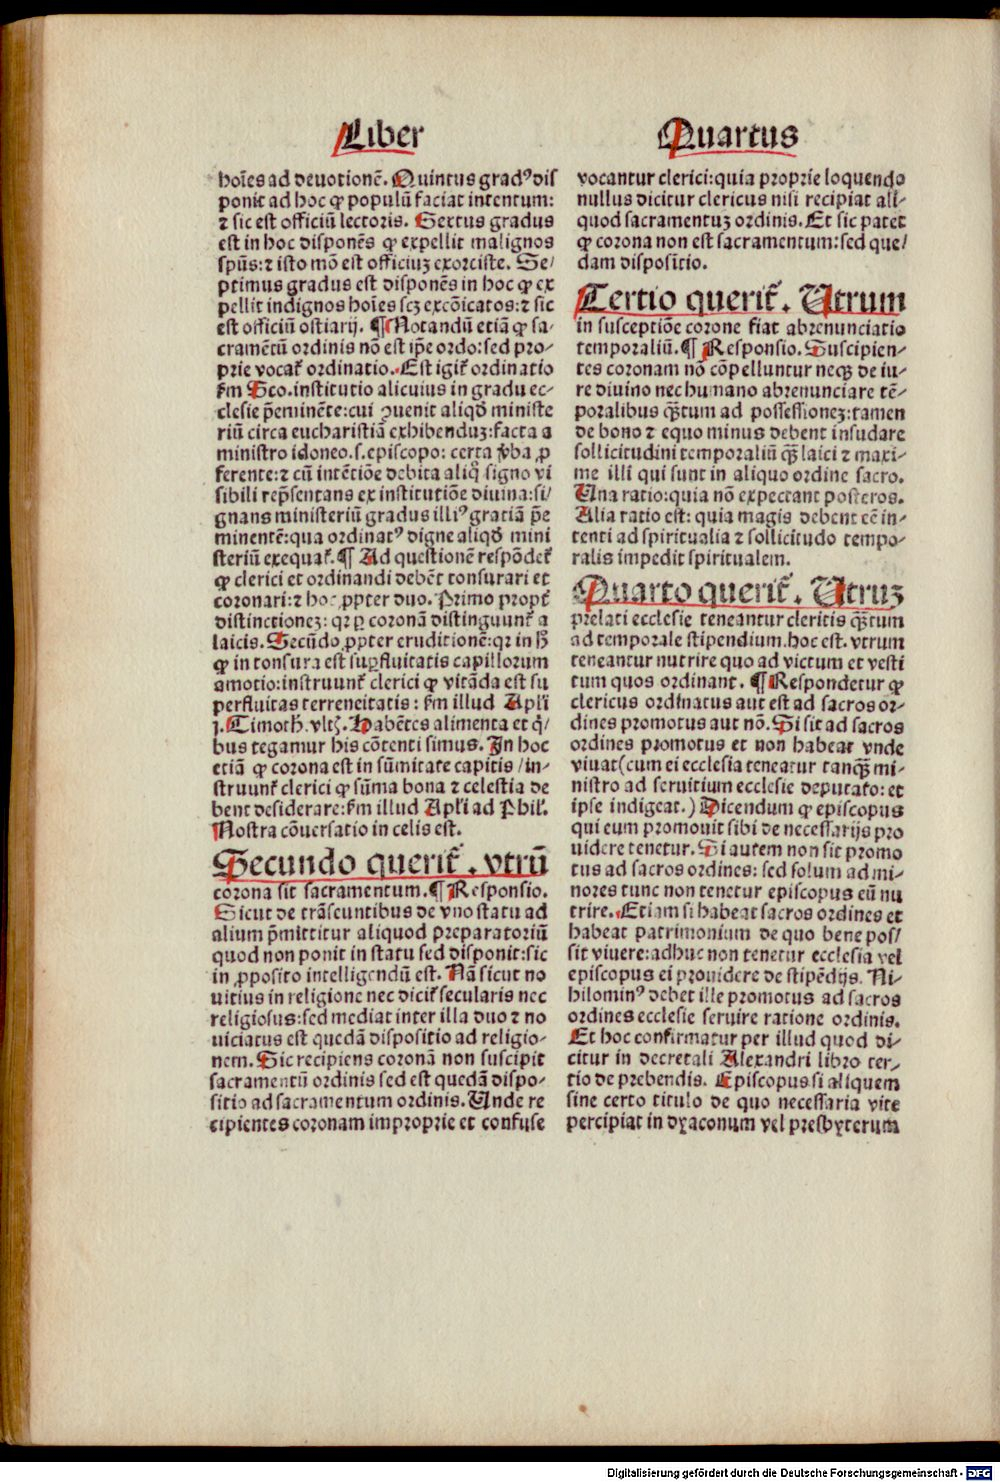 Liber Quartus
hoīes ad deuotionē. Quintus gradꝰ dis
ponit ad hoc ꝙ populū faciat intentum:
⁊ sic est officiū lectoris. Sextus gradus
est in hoc disponēs ꝙ expellit malignos
spūs: ⁊ isto mō est officiuꝫ exorciste. Se⸗
ptimus gradus est disponēs in hoc ꝙ ex
pellit indignos hoīes scꝫ excōicatos: ⁊ sic
est officiū ostiarij. ¶ Notandū etiā ꝙ sa⸗
cramētū ordinis nō est ip̄e ordo: sed pro⸗
prie vocat᷑ ordinatio. Est igit᷑ ordinatio
ẜm Sco. institutio alicuius in gradu ec⸗
clesie p̄eminēte: cui ꝯuenit aliqđ ministe
riū circa eucharistiā exhibenduꝫ: facta a
ministro idoneo. s. episcopo: certa v̄ba ꝓ
ferente: ⁊ cū intētiōe debita aliq̊ signo vi
sibili rep̄sentans ex institutiōe diuina: si⸗
gnans ministeriū gradus illiꝰ gratiā p̄e
minentē: qua ordinatꝰ digne aliqđ mini
steriū exequat᷑. ¶ Ad questionē respōdet᷑
ꝙ clerici et ordinandi debēt tonsurari et
coronari: ⁊ hoc ꝓpter duo. Primo propt᷑
distinctioneꝫ: qꝛ ꝑ coronā distinguunt᷑ a
laicis. Secūdo ꝓpter eruditionē: qꝛ in ħ
ꝙ in tonsura est suꝑfluitatis capillorum
amotio: instruunt᷑ clerici ꝙ vitāda est su
perfluitas terreneitatis: ẜm illud Apl̄i
j. Timoth. vltꝫ. Habētes alimenta et q̄
bus tegamur his cōtenti simus. In hoc
etiā ꝙ corona est in sūmitate capitis / in⸗
struunt᷑ clerici ꝙ sūma bona ⁊ celestia de
bent desiderare: ẜm illud Apl̄i ad Phil̄.
Nostra cōuersatio in celis est.
Secundo querit᷑. vtrū
corona sit sacramentum. ¶ Responsio.
Sicut de trāseuntibus de vno statu ad
alium p̄mittitur aliquod preparatoriū
quod non ponit in statu sed disponit: sic
in ꝓposito intelligendū est. Nā sicut no
uitius in religione nec dicit᷑ secularis nec
religiosus: sed mediat inter illa duo ⁊ no
uiciatus est quedā dispositio ad religio⸗
nem. Sic recipiens coronā non suscipit
sacramentū ordinis sed est quedā dispo⸗
sitio ad sacramentum ordinis. Unde re
cipientes coronam improprie et confuse
vocantur clerici: quia proprie loquendo
nullus dicitur clericus nisi recipiat ali⸗
quod sacramentuꝫ ordinis. Et sic patet
ꝙ corona non est sacramentum: sed que⸗
dam dispositio.
Tertio querit᷑. Utrum
in susceptiōe corone fiat abrenunciatio
temporaliū. ¶ Responsio. Suscipien⸗
tes coronam nō cōpelluntur neqꝫ de iu⸗
re diuino nec humano abrenunciare tē⸗
poralibus qᷓtum ad possessioneꝫ: tamen
de bono ⁊ equo minus debent insudare
sollicitudini temporaliū qᷓꝫ laici ⁊ maxi⸗
me illi qui sunt in aliquo ordine sacro.
Una ratio: quia nō expectant posteros.
Alia ratio est: quia magis debent eē in⸗
tenti ad spiritualia ⁊ sollicitudo tempo⸗
ralis impedit spiritualem.
Quarto querit᷑. Utruꝫ
prelati ecclesie teneantur clericis qᷓꝫtum
ad temporale stipendium. hoc est. vtrum
teneantur nutrire quo ad victum et vesti
tum quos ordinant. ¶ Respondetur ꝙ
clericus ordinatus aut est ad sacros or⸗
dines promotus aut nō. Si sit ad sacros
ordines promotus et non habeat vnde
viuat (cum ei ecclesia teneatur tanqᷓꝫ mi⸗
nistro ad seruitium ecclesie deputato: et
ipse indigeat.) Dicendum ꝙ episcopus
qui eum promouit sibi de necessarijs pro
uidere tenetur. Si autem non sit promo
tus ad sacros ordines: sed solum ad mi⸗
nores tunc non tenetur episcopus eū nu
trire. Etiam si habeat sacros ordines et
habeat patrimonium de quo bene pos⸗
sit viuere: adhuc non tenetur ecclesia vel
episcopus ei prouidere de stipēdijs. Ni⸗
hilominꝰ debet ille promotus ad sacros
ordines ecclesie seruire ratione ordinis.
Et hoc confirmatur per illud quod di⸗
citur in decretali Alexandri libro ter⸗
tio de prebendis. Episcopus si aliquem
sine certo titulo de quo necessaria vite
percipiat in dyaconum vel presbyterum
Digitalisierung gefördert durch die Deutsche Forschungsgemeinschaft - DFG